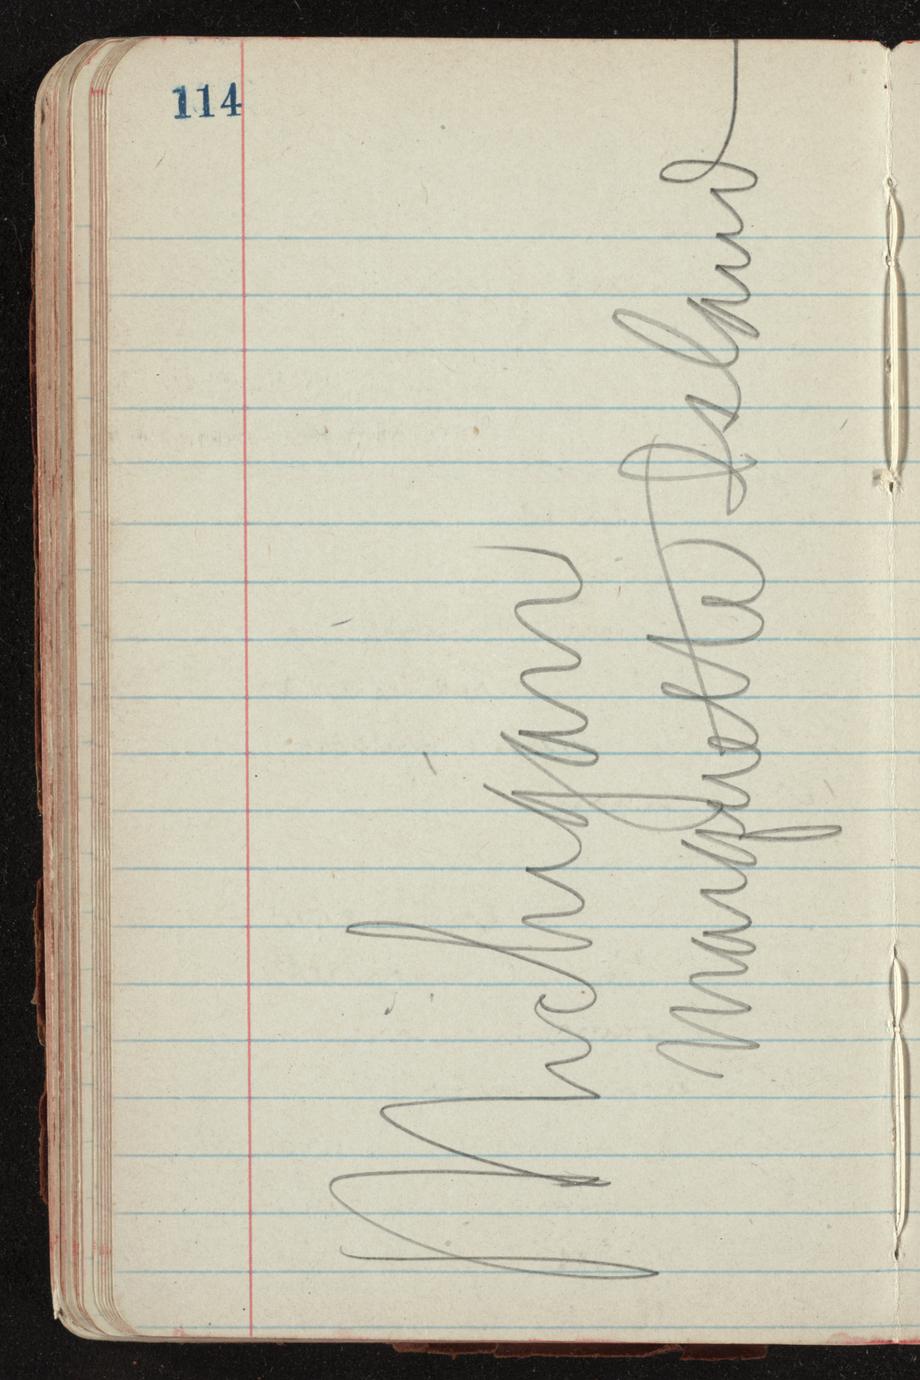 114
Michigan
Marquette Island